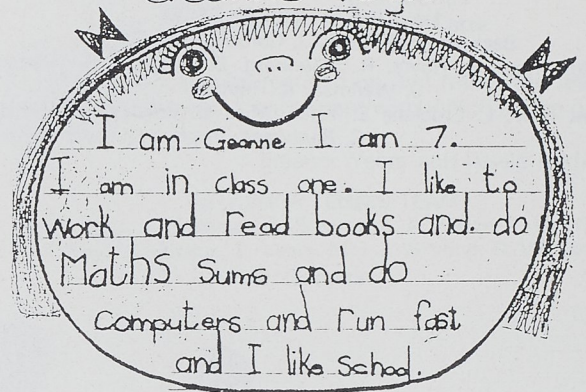 I am Geanne I am 7.
I am in class one. I like to
work and read books and. do
Maths sums and do
computers and run fast
and I like school.